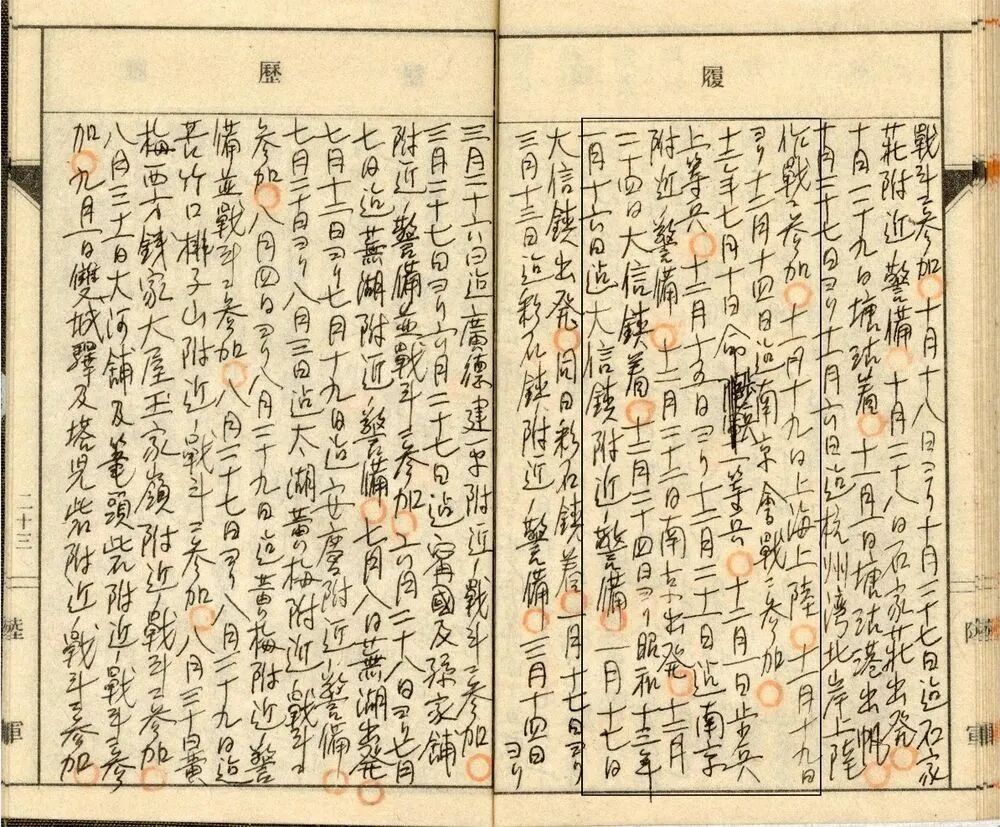 履
戰斗ニ参加。十月十八日ヨリ十月二十七日迄石家
莊附近ノ警備。十月二十八日石家莊出発。
十月二十九日塘沽着。十一月一日塘沽港出帆。
十月二十七日ヨリ十一月六日迄杭州湾北岸上陸
作戰ニ参加。十一月十九日上海上陸。十一月十九日
ヨリ十二月十四日迄南京會戰ニ参加。
十二年七月十日命 一等兵。十二月一日步兵
上等兵。十二月十五日ヨリ十二月二十一日迄南京
附近ノ警備。十二月二十二日南京出発。十二月
二十四日大信鎮着。十二月二十四日ヨリ昭和十三年
一月十六日迄大信鎮附近ノ警備。一月十七日
大信鎮出発。同日彩石鎮着。一月十七日ヨリ
三月十三日迄彩石鎮附近ノ警備。三月十四日ヨリ
陸軍
歷
三月二十六日迄廣德建平附近ノ戰斗ニ参加。
三月二十七日ヨリ六月二十七日迄甯國及孫家鋪
附近ノ警備並戰斗ニ参加。六月二十八日ヨリ七月
七日迄蕪湖附近ノ警備。七月八日蕪湖出発。
七月十二日ヨリ七月十九日迄安慶附近ノ警備。
七月二十日ヨリ八月三日迄太湖黃梅附近ノ戰斗ニ
参加。八月四日ヨリ八月二十九日迄黃梅附近ノ警
備並戰斗ニ参加。八月二十七日ヨリ八月二十九日迄
苦竹口排子山附近ノ戰斗ニ参加。八月三十日黃
梅西方錢家大屋王家嶺附近ノ戰斗ニ参加。
八月三十一日大河鋪及筆頭岩附近ノ戰斗ニ参
加。九月一日雙城驛及塔児岩附近ノ戰斗ニ参加。
二十三
陸軍